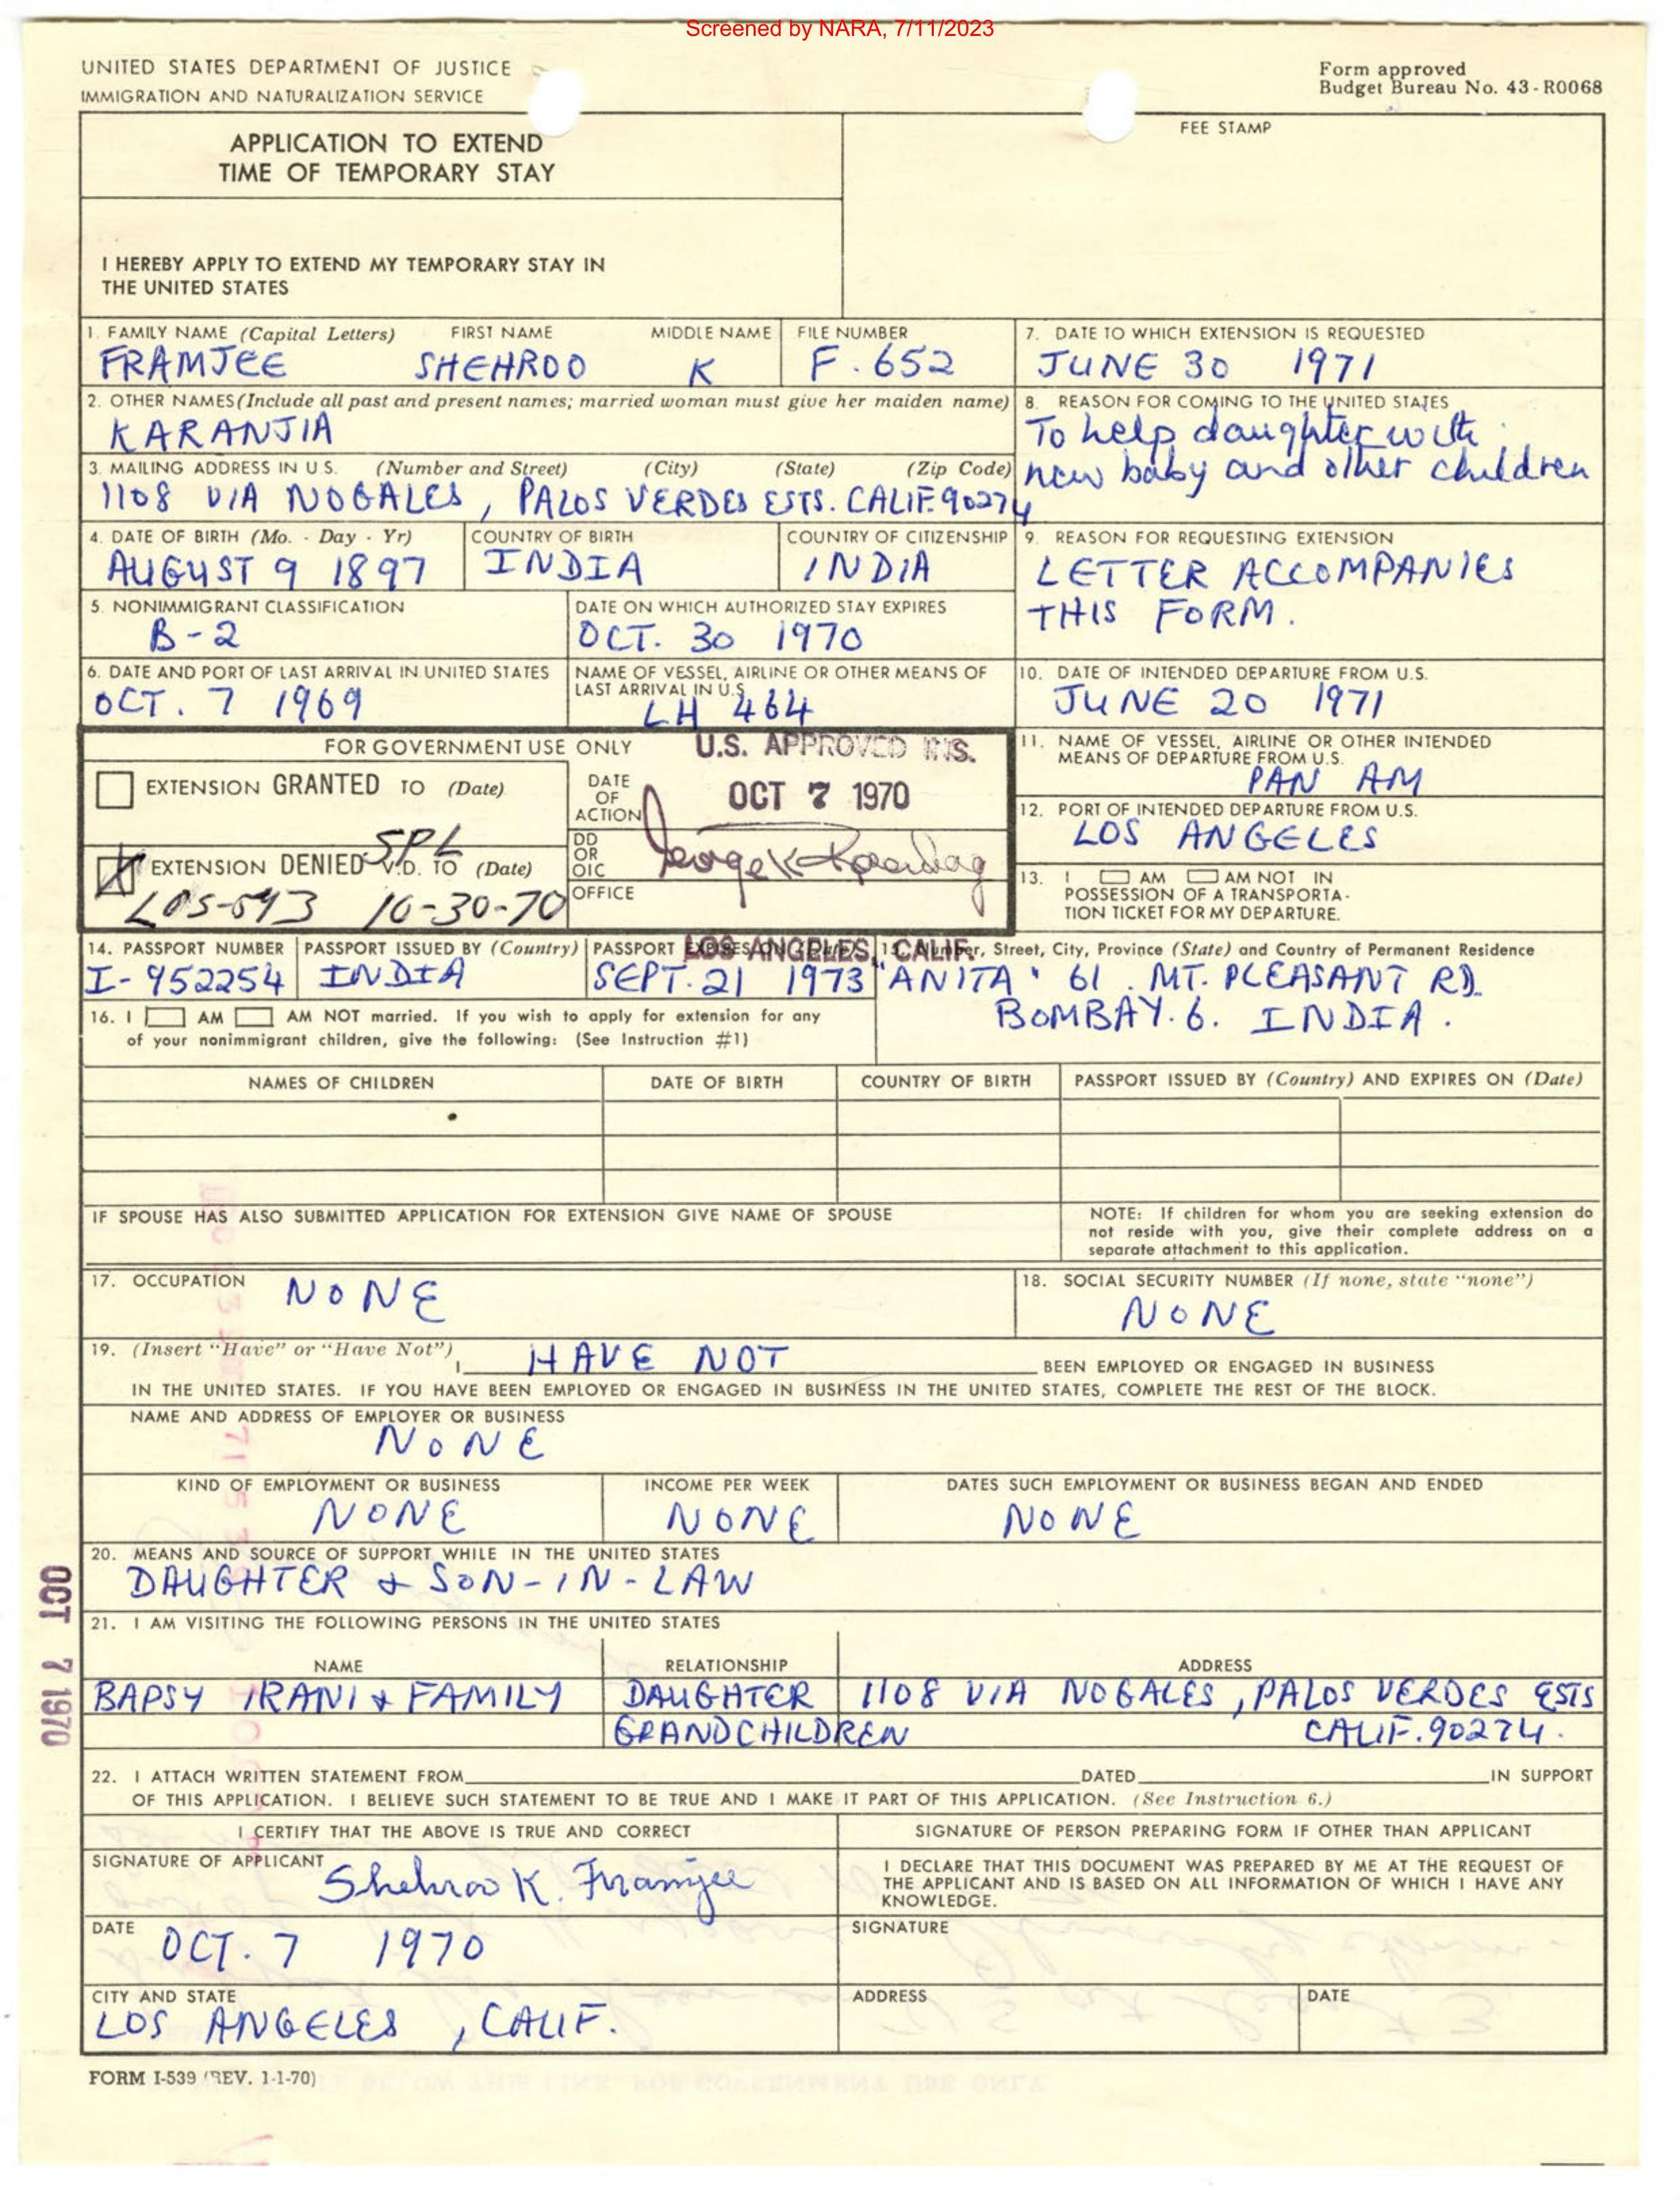 Screened by NARA, 7/11/2023
UNITED STATES DEPARTMENT OF JUSTICE
IMMIGRATION AND NATURALIZATION SERVICE
Form approved
Budget Bureau No. 43-R0068
APPLICATION TO EXTEND
TIME OF TEMPORARY STAY
FEE STAMP
I HEREBY APPLY TO EXTEND MY TEMPORARY STAY IN
THE UNITED STATES
1. FAMILY NAME (Capital Letters) FIRST NAME MIDDLE NAME FILE NUMBER
FRAMJEE SHEHROO K F. 652
7. DATE TO WHICH EXTENSION IS REQUESTED
JUNE 30 1971
2. OTHER NAMES (Include all past and present names; married woman must give her maiden name)
KARANJIA
8. REASON FOR COMING TO THE UNITED STATES
To help daughter with
new baby and other children
3. MAILING ADDRESS IN U.S. (Number and Street) (City) (State) (Zip Code)
1108 VIA NOGALES, PALOS VERDES ESTS. CALIF. 90274
4. DATE OF BIRTH (Mo. - Day - Yr) COUNTRY OF BIRTH COUNTRY OF CITIZENSHIP
AUGUST 9 1897 INDIA INDIA
9. REASON FOR REQUESTING EXTENSION
LETTER ACCOMPANIES
THIS FORM.
5. NONIMMIGRANT CLASSIFICATION DATE ON WHICH AUTHORIZED STAY EXPIRES
B-2 OCT. 30 1970
6. DATE AND PORT OF LAST ARRIVAL IN UNITED STATES
OCT. 7 1969
NAME OF VESSEL, AIRLINE OR OTHER MEANS OF
LAST ARRIVAL IN U.S.
LH 464
10. DATE OF INTENDED DEPARTURE FROM U.S.
JUNE 20 1971
FOR GOVERNMENT USE ONLY
U.S. APPROVED INS.
EXTENSION GRANTED TO (Date)
DATE
OF
ACTION
OCT 7 1970
SPL
EXTENSION DENIED V.D. TO (Date)
LOS-593 10-30-70
DD
OR
OIC
OFFICE
LOS ANGELES, CALIF.
11. NAME OF VESSEL, AIRLINE OR OTHER INTENDED
MEANS OF DEPARTURE FROM U.S.
PAN AM
12. PORT OF INTENDED DEPARTURE FROM U.S.
LOS ANGELES
13. I AM AM NOT IN
POSSESSION OF A TRANSPORTA-
TION TICKET FOR MY DEPARTURE.
14. PASSPORT NUMBER PASSPORT ISSUED BY (Country) PASSPORT EXPIRES ON (Date)
I-952254 INDIA SEPT. 21 1973
15. Number, Street, City, Province (State) and Country of Permanent Residence
"ANITA" 61. MT. PLEASANT RD.
BOMBAY. 6. INDIA.
16. I AM AM NOT married. If you wish to apply for extension for any
of your nonimmigrant children, give the following: (See Instruction #1)
NAMES OF CHILDREN DATE OF BIRTH COUNTRY OF BIRTH PASSPORT ISSUED BY (Country) AND EXPIRES ON (Date)
IF SPOUSE HAS ALSO SUBMITTED APPLICATION FOR EXTENSION GIVE NAME OF SPOUSE
NOTE: If children for whom you are seeking extension do
not reside with you, give their complete address on a
separate attachment to this application.
17. OCCUPATION
NONE
18. SOCIAL SECURITY NUMBER (If none, state "none")
NONE
19. (Insert "Have" or "Have Not")
I HAVE NOT BEEN EMPLOYED OR ENGAGED IN BUSINESS
IN THE UNITED STATES. IF YOU HAVE BEEN EMPLOYED OR ENGAGED IN BUSINESS IN THE UNITED STATES, COMPLETE THE REST OF THE BLOCK.
NAME AND ADDRESS OF EMPLOYER OR BUSINESS
NONE
KIND OF EMPLOYMENT OR BUSINESS INCOME PER WEEK DATES SUCH EMPLOYMENT OR BUSINESS BEGAN AND ENDED
NONE NONE NONE
20. MEANS AND SOURCE OF SUPPORT WHILE IN THE UNITED STATES
DAUGHTER & SON-IN-LAW
21. I AM VISITING THE FOLLOWING PERSONS IN THE UNITED STATES
NAME RELATIONSHIP ADDRESS
BAPSY IRANI & FAMILY DAUGHTER 1108 VIA NOGALES, PALOS VERDES ESTS
GRANDCHILDREN CALIF. 90274.
OCT 7 1970
22. I ATTACH WRITTEN STATEMENT FROM DATED IN SUPPORT
OF THIS APPLICATION. I BELIEVE SUCH STATEMENT TO BE TRUE AND I MAKE IT PART OF THIS APPLICATION. (See Instruction 6.)
I CERTIFY THAT THE ABOVE IS TRUE AND CORRECT
SIGNATURE OF APPLICANT
Shehroo K. Framjee
DATE
OCT. 7 1970
CITY AND STATE
LOS ANGELES, CALIF.
SIGNATURE OF PERSON PREPARING FORM IF OTHER THAN APPLICANT
I DECLARE THAT THIS DOCUMENT WAS PREPARED BY ME AT THE REQUEST OF
THE APPLICANT AND IS BASED ON ALL INFORMATION OF WHICH I HAVE ANY
KNOWLEDGE.
SIGNATURE
ADDRESS DATE
FORM I-539 (REV. 1-1-70)